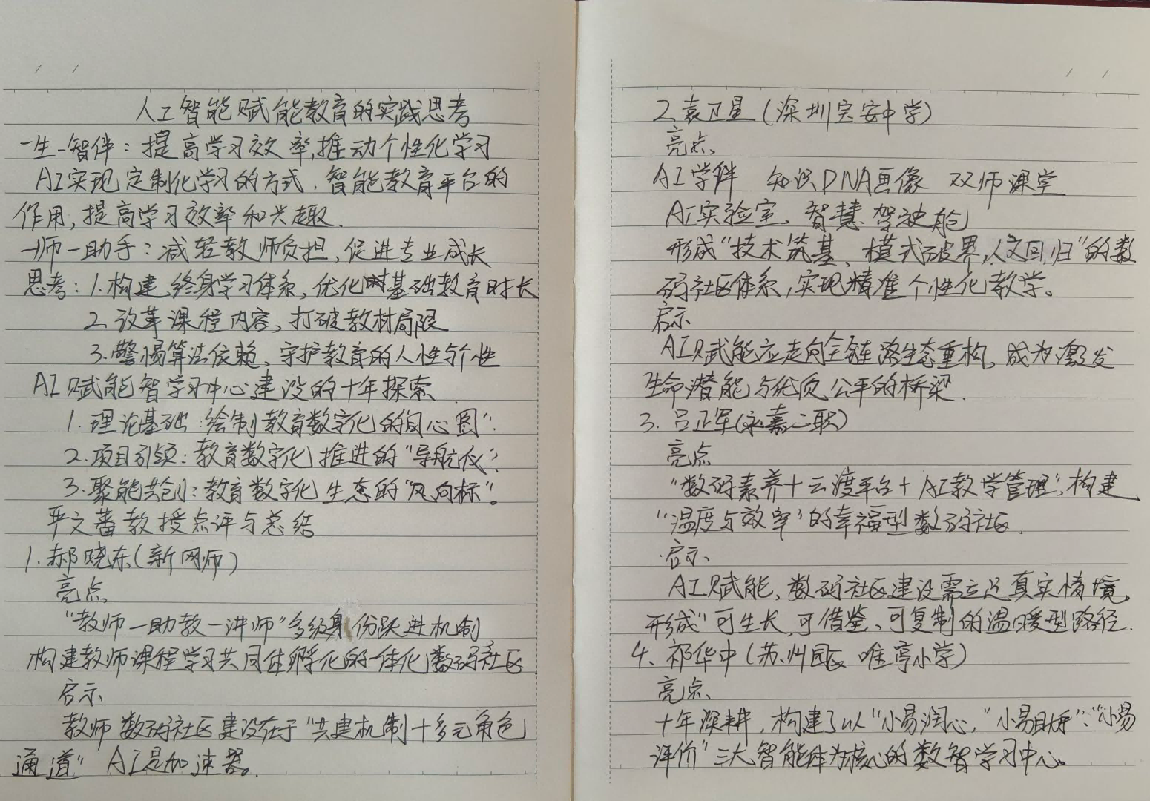 人工智能赋能教育的实践思考
一生一智伴：提高学习效率,推动个性化学习
AI实现定制化学习的方式.智能教育平台的
作用,提高学习效率和兴趣.
一师一助手：减轻教师负担，促进专业成长
思考：1.构建终身学习体系，优化基础教育时长
2.改革课程内容，打破教材局限
3.警惕算法依赖，守护教育的人性与个性
AI赋能智学习中心建设的十年探索
1.理论基础：绘制教育数字化的"同心圆".
2.项目引领：教育数字化推进的"导航仪".
3.聚能共创：教育数字化生态的"风向标".
严文蕃教授点评与总结
1.郝晓东(新网师)
亮点
"教师一助教一讲师"多级身份跃进机制
构建教师课程学习共同体孵化的一体化数码社区
启示
教师数码社区建设在于"共建机制+多元角色
通道" AI是加速器.
2.袁卫星(深圳宝安中学)
亮点
AI学伴 知识DNA画像 双师课堂
AI实验室、智慧驾驶舱
形成"技术筑基、模式破界,人文回归"的数
码社区体系,实现精准个性化教学。
启示
AI赋能应走向全链路生态重构，成为激发
生命潜能与优质公平的桥梁.
3.吕正军(永嘉二职)
亮点
"数码素养+云渡平台+AI教学管理",构建
"温度与效率"的幸福型数码社区.
启示
AI赋能，数码社区建设需立足真实情境,
形成"可生长、可借鉴、可复制的温暖型路径.
4、祁华中(苏州园区唯亭小学)
亮点
十年深耕，构建了以"小易润心，"小易助析"、"小易
评价"三大智能体为核心的数智学习中心。